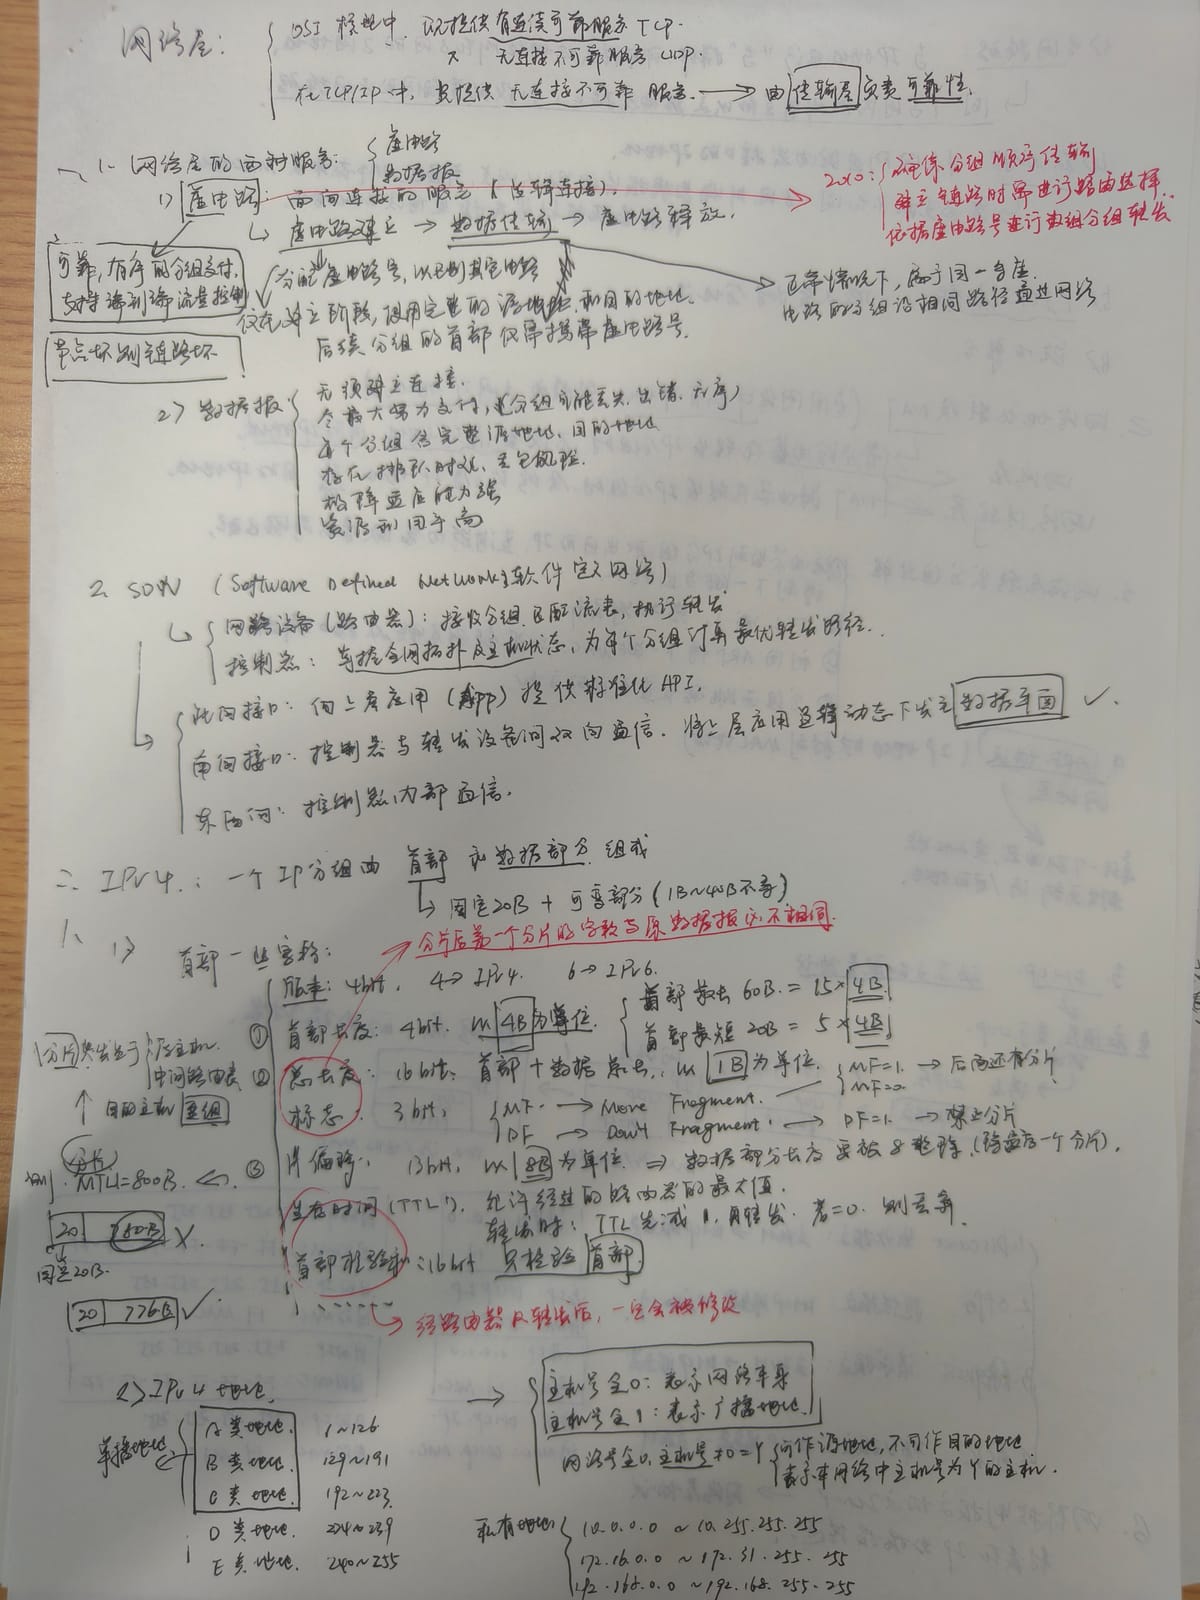 网络层:
OSI 模型中, 既提供有连接可靠服务 TCP.
又 无连接不可靠服务 UDP.
在TCP/IP中, 只提供 无连接不可靠 服务. → 由传输层负责可靠性.
一、1. 网络层的两种服务: 虚电路
数据报
1) 虚电路: 面向连接的服务 (逻辑连接).
2020: 确保分组顺序传输
建立链路时需进行路由选择
依据虚电路号进行数据分组转发
↳ 虚电路建立 → 数据传输 → 虚电路释放.
可靠, 有序的分组交付,
支持端到端流量控制
分配虚电路号, 以区别其它电路
仅在建立阶段, 使用完整的源地址和目的地址.
后续分组的首部仅需携带虚电路号.
正常情况下, 属于同一条虚
电路的分组沿相同路径通过网络
节点坏则链路坏
2) 数据报 无须建立连接.
尽最大努力交付, (分组可能丢失、出错、无序)
每个分组含完整源地址、目的地址
存在排队时延、丢包风险.
故障适应能力强
资源利用率高
2. SDN (Software Defined Network) 软件定义网络)
网络设备 (路由器): 接收分组, 匹配流表, 执行转发
控制器: 掌握全网拓扑及主机状态, 为每个分组计算最优转发路径.
北向接口: 向上层应用 (App) 提供标准化 API.
南向接口: 控制器与转发设备间双向通信. 将上层应用逻辑动态下发至数据平面 ✓.
东西向: 控制器内部通信.
二. IPv4.: 一个IP分组由 首部 和数据部分 组成
↳ 固定20B + 可变部分 (1B~40B不等)
分片后第一个分片的字节数与原数据报必不相同.
1、 1) 首部一些字段:
版本: 4bit. 4→IPv4. 6→IPv6.
① 首部长度: 4bit. 以 4B 为单位. 首部最长 60B. = 15×4B
首部最短 20B = 5×4B
分片发生于 源主机.
中间路由器
② 总长度: 16bit: 首部+数据 总长. 以 1B 为单位. MF=1. → 后面还有分片
MF=0.
↑ 目的主机重组
标志: 3bit, MF. → More Fragment.
DF → Don't Fragment. → DF=1. → 禁止分片
③ 片偏移: 13bit, 以 8B 为单位. ⇒ 数据部分长度 要被8整除. (除最后一个分片).
分片
MTU=800B.
20 780B ✗.
固定20B.
20 776B ✓
生存时间 (TTL). 允许经过的路由器的最大值.
转发时: TTL先减1, 再转发. 若=0. 则丢弃.
首部检验和: 16bit 只检验首部
↳ 经路由器及转发后, 一定会被修改
2) IPv4 地址. →
主机号全0: 表示网络本身
主机号全1: 表示广播地址.
单播地址
A类地址. 1~126
B类地址. 129~191
C类地址. 192~223.
D类地址. 224~239
E类地址. 240~255
网络号全0, 主机号≠0=Y 可作源地址, 不可作目的地址
表示本网络中主机号为Y的主机.
私有地址 10.0.0.0 ~ 10.255.255.255
172.16.0.0 ~ 172.31.255.255
192.168.0.0 ~ 192.168.255.255